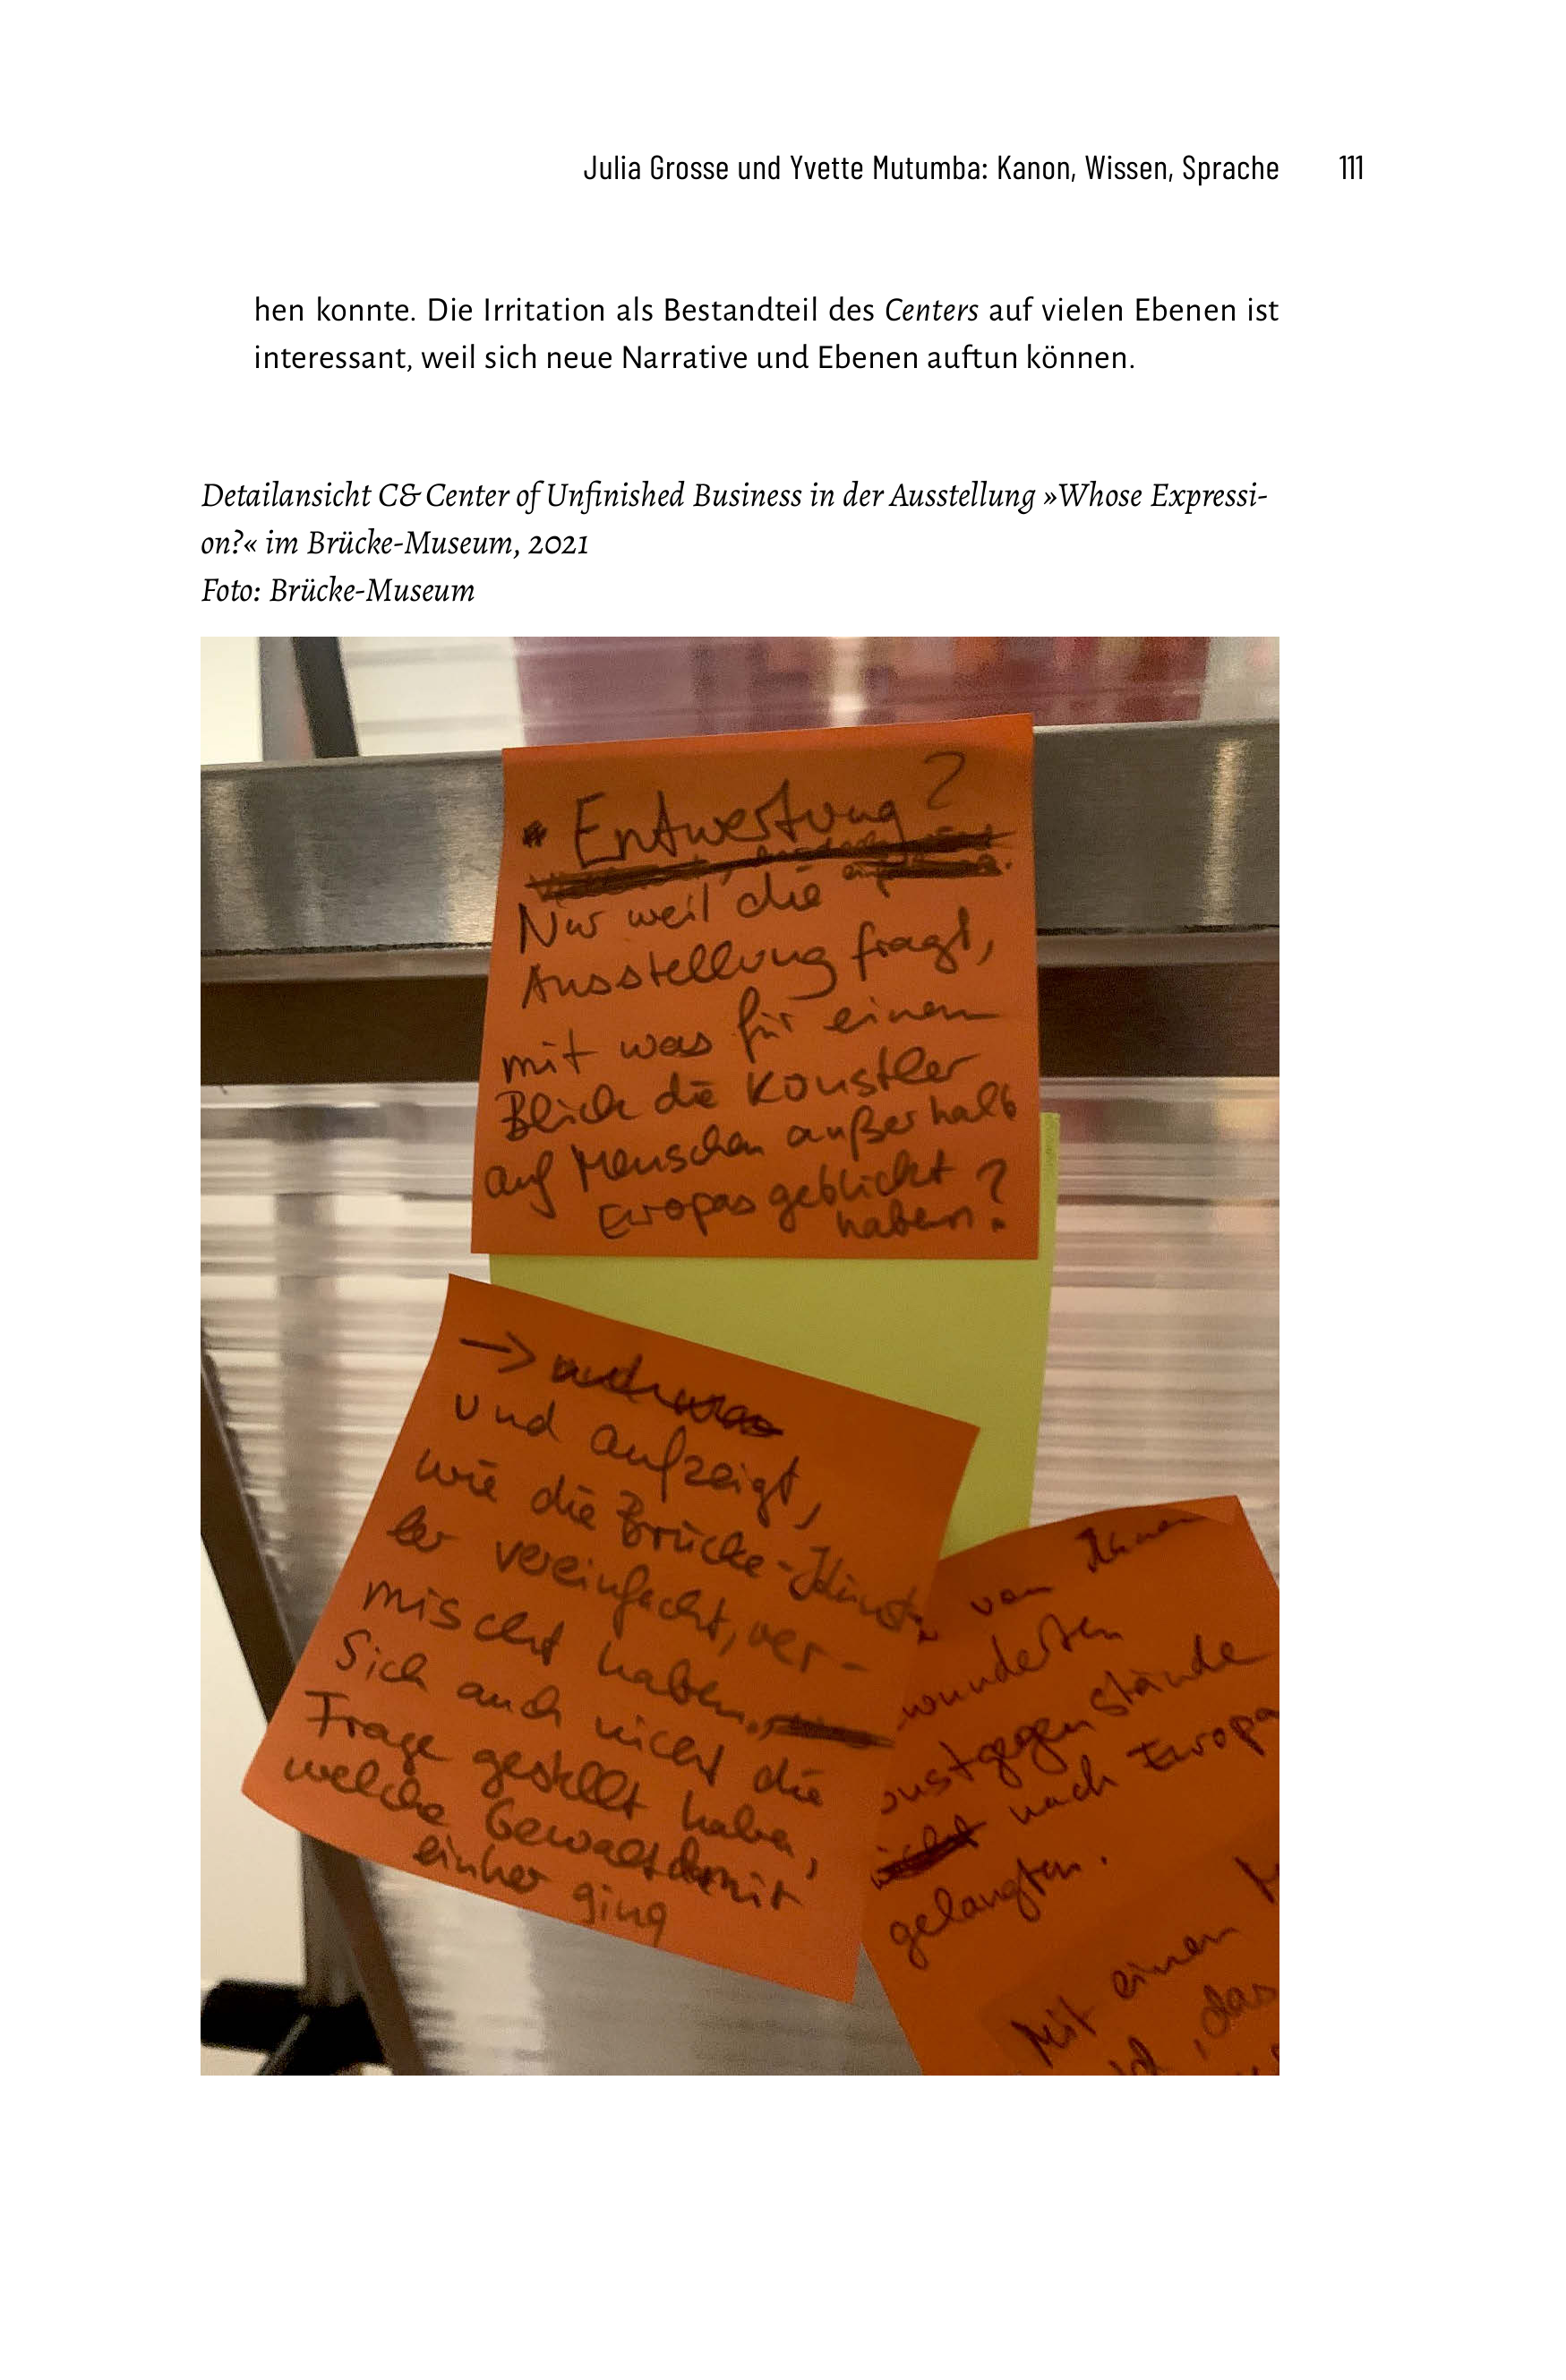 Julia Grosse und Yvette Mutumba: Kanon, Wissen, Sprache 111
hen konnte. Die Irritation als Bestandteil des Centers auf vielen Ebenen ist
interessant, weil sich neue Narrative und Ebenen auftun können.
Detailansicht C& Center of Unfinished Business in der Ausstellung »Whose Expressi-
on?« im Brücke-Museum, 2021
Foto: Brücke-Museum
* Entwertung?
Nur weil die
Ausstellung fragt,
mit was für einem
Blick die Künstler
auf Menschen außerhalb
Europas geblickt
haben?
→
und aufzeigt,
wie die Brücke-Künst
ler vereinfacht, ver-
mischt haben.
Sich auch nicht die
Frage gestellt haben,
welche Gewalt damit
einher ging
von ihnen
wunderten
unstgegenstände
nach Europa
gelangten.
Mit einem
, das